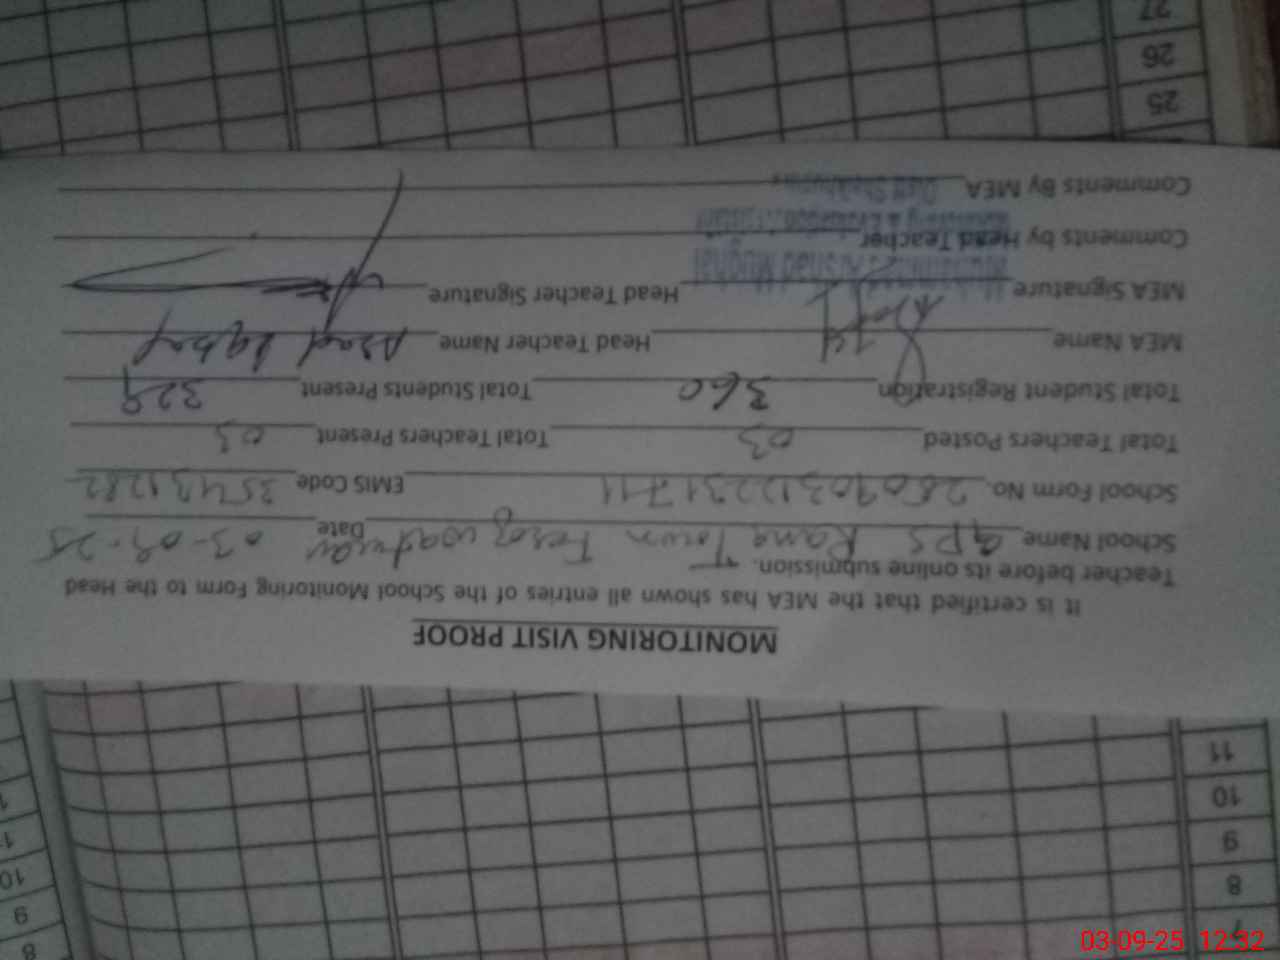 MONITORING VISIT PROOF
It is certified that the MEA has shown all entries of the School Monitoring Form to the Head
Teacher before its online submission.
School Name GPS Rana Town Feroz wattwan Date 03-09-25
School Form No. EMIS Code
Total Teachers Posted 03 Total Teachers Present 03
Total Student Registration 360 Total Students Present 329
MEA Name Head Teacher Name Asad Iqbal
MEA Signature Head Teacher Signature
Muhammad Arshad Mughal
Comments by Head Teacher
Monitoring & Evaluation Assistant
Comments By MEA
Distt Sheikhupura
25
26
27
7
8
9
10
11
8
9
10
03-09-25 12:32